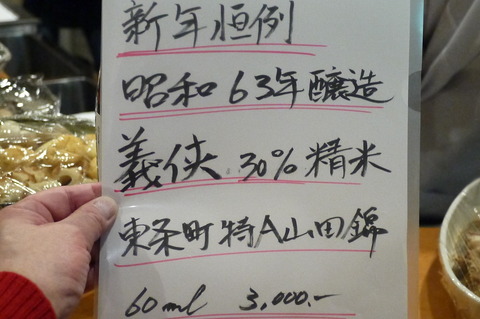 新年恒例
昭和63年醸造
義侠 30%精米
東条町特A山田錦
60ml 3,000.-